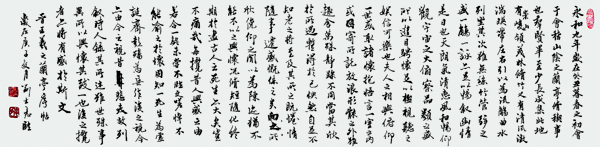 永和九年歲在癸丑暮春之初會
于會稽山陰之蘭亭修禊事
也群賢畢至少長咸集此地
有崇山峻領茂林脩竹又有清流激
湍暎帶左右引以為流觴曲水
列坐其次雖無絲竹管弦之
盛一觴一詠亦足以暢敘幽情
是日也天朗氣清惠風和暢仰
觀宇宙之大俯察品類之盛
所以遊目騁懷足以極視聽之
娛信可樂也夫人之相與俯仰
一世或取諸懷抱悟言一室之內
或因寄所託放浪形骸之外雖
趣舍萬殊靜躁不同當其欣
於所遇暫得於己快然自足不
知老之將至及其所之既惓情
隨事遷感慨係之矣向之所
欣俛仰之間以為陳迹猶不
能不以之興懷況脩短隨化終
期於盡古人云死生亦大矣豈
不痛哉每攬昔人興感之由
若合一契未嘗不臨文嗟悼不
能喻之於懷固知一死生為虛
誕齊彭殤為妄作後之視今
亦由今之視昔悲夫故列
敘時人錄其所述雖世殊事
異所以興懷其致一也後之攬
者亦將有感於斯文
晉王羲之蘭亭序